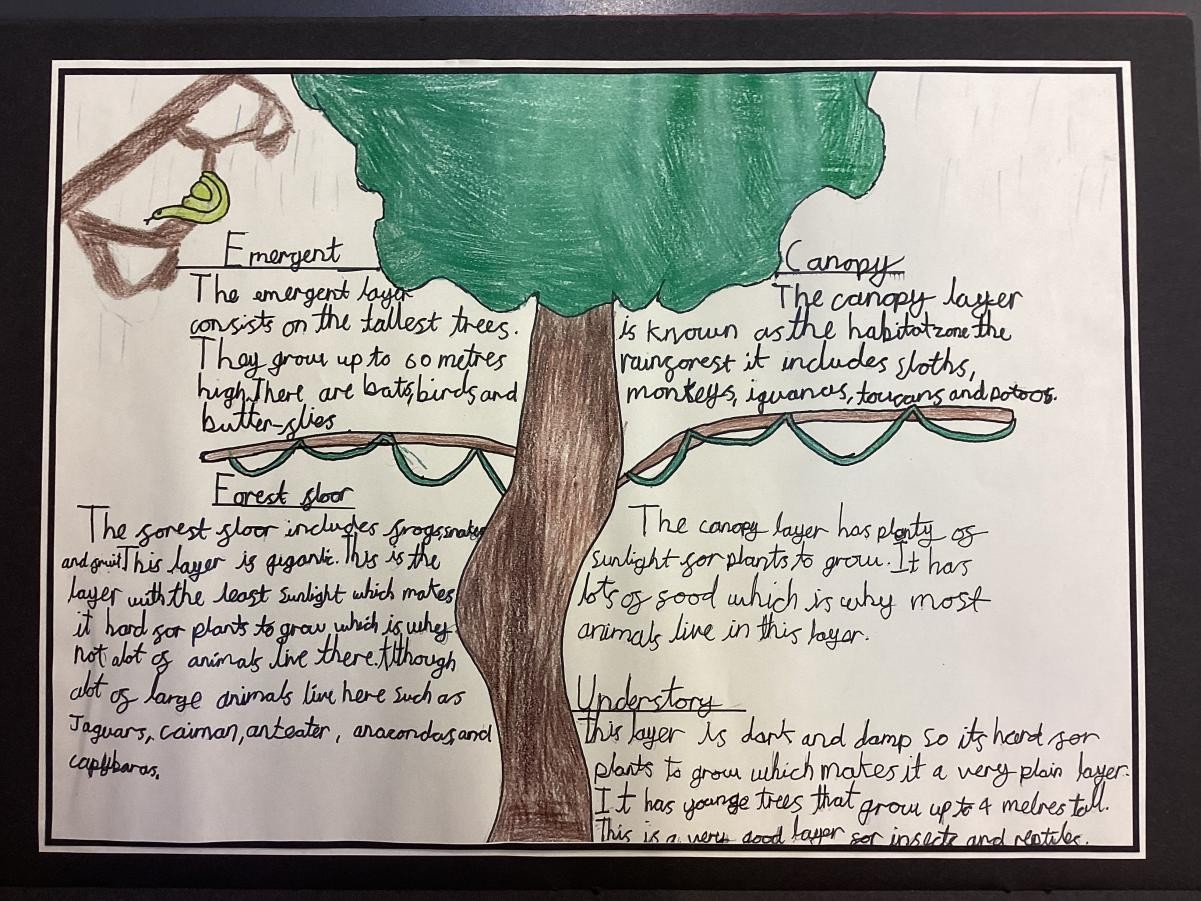 Emergent
The emergent layer
consists on the tallest trees.
They grow up to 60 metres
high. There are bats, birds and
butter-flies
Canopy
The canopy layer
is known as the habitat zone the
rainforest it includes sloths,
monkeys, iguanas, toucans and potoos.
Forest floor
The forest floor includes frogs, snakes
and fruit This layer is gigantic. This is the
layer with the least sunlight which makes
it hard for plants to grow which is why
not alot of animals live there. Although
alot of large animals live here such as
Jaguars, caiman, anteater, anacondas, and
capybaras.
The canopy layer has plenty of
sunlight for plants to grow. It has
lots of food which is why most
animals live in this layer.
Understory
This layer is dark and damp so its hard for
plants to grow which makes it a very plain layer.
It has younge trees that grow up to 4 metres tall.
This is a very good layer for insects and reptiles.